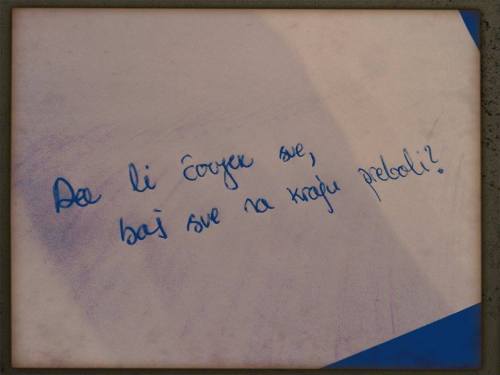 Da li čovjek sve,
baš sve na kraju preboli?